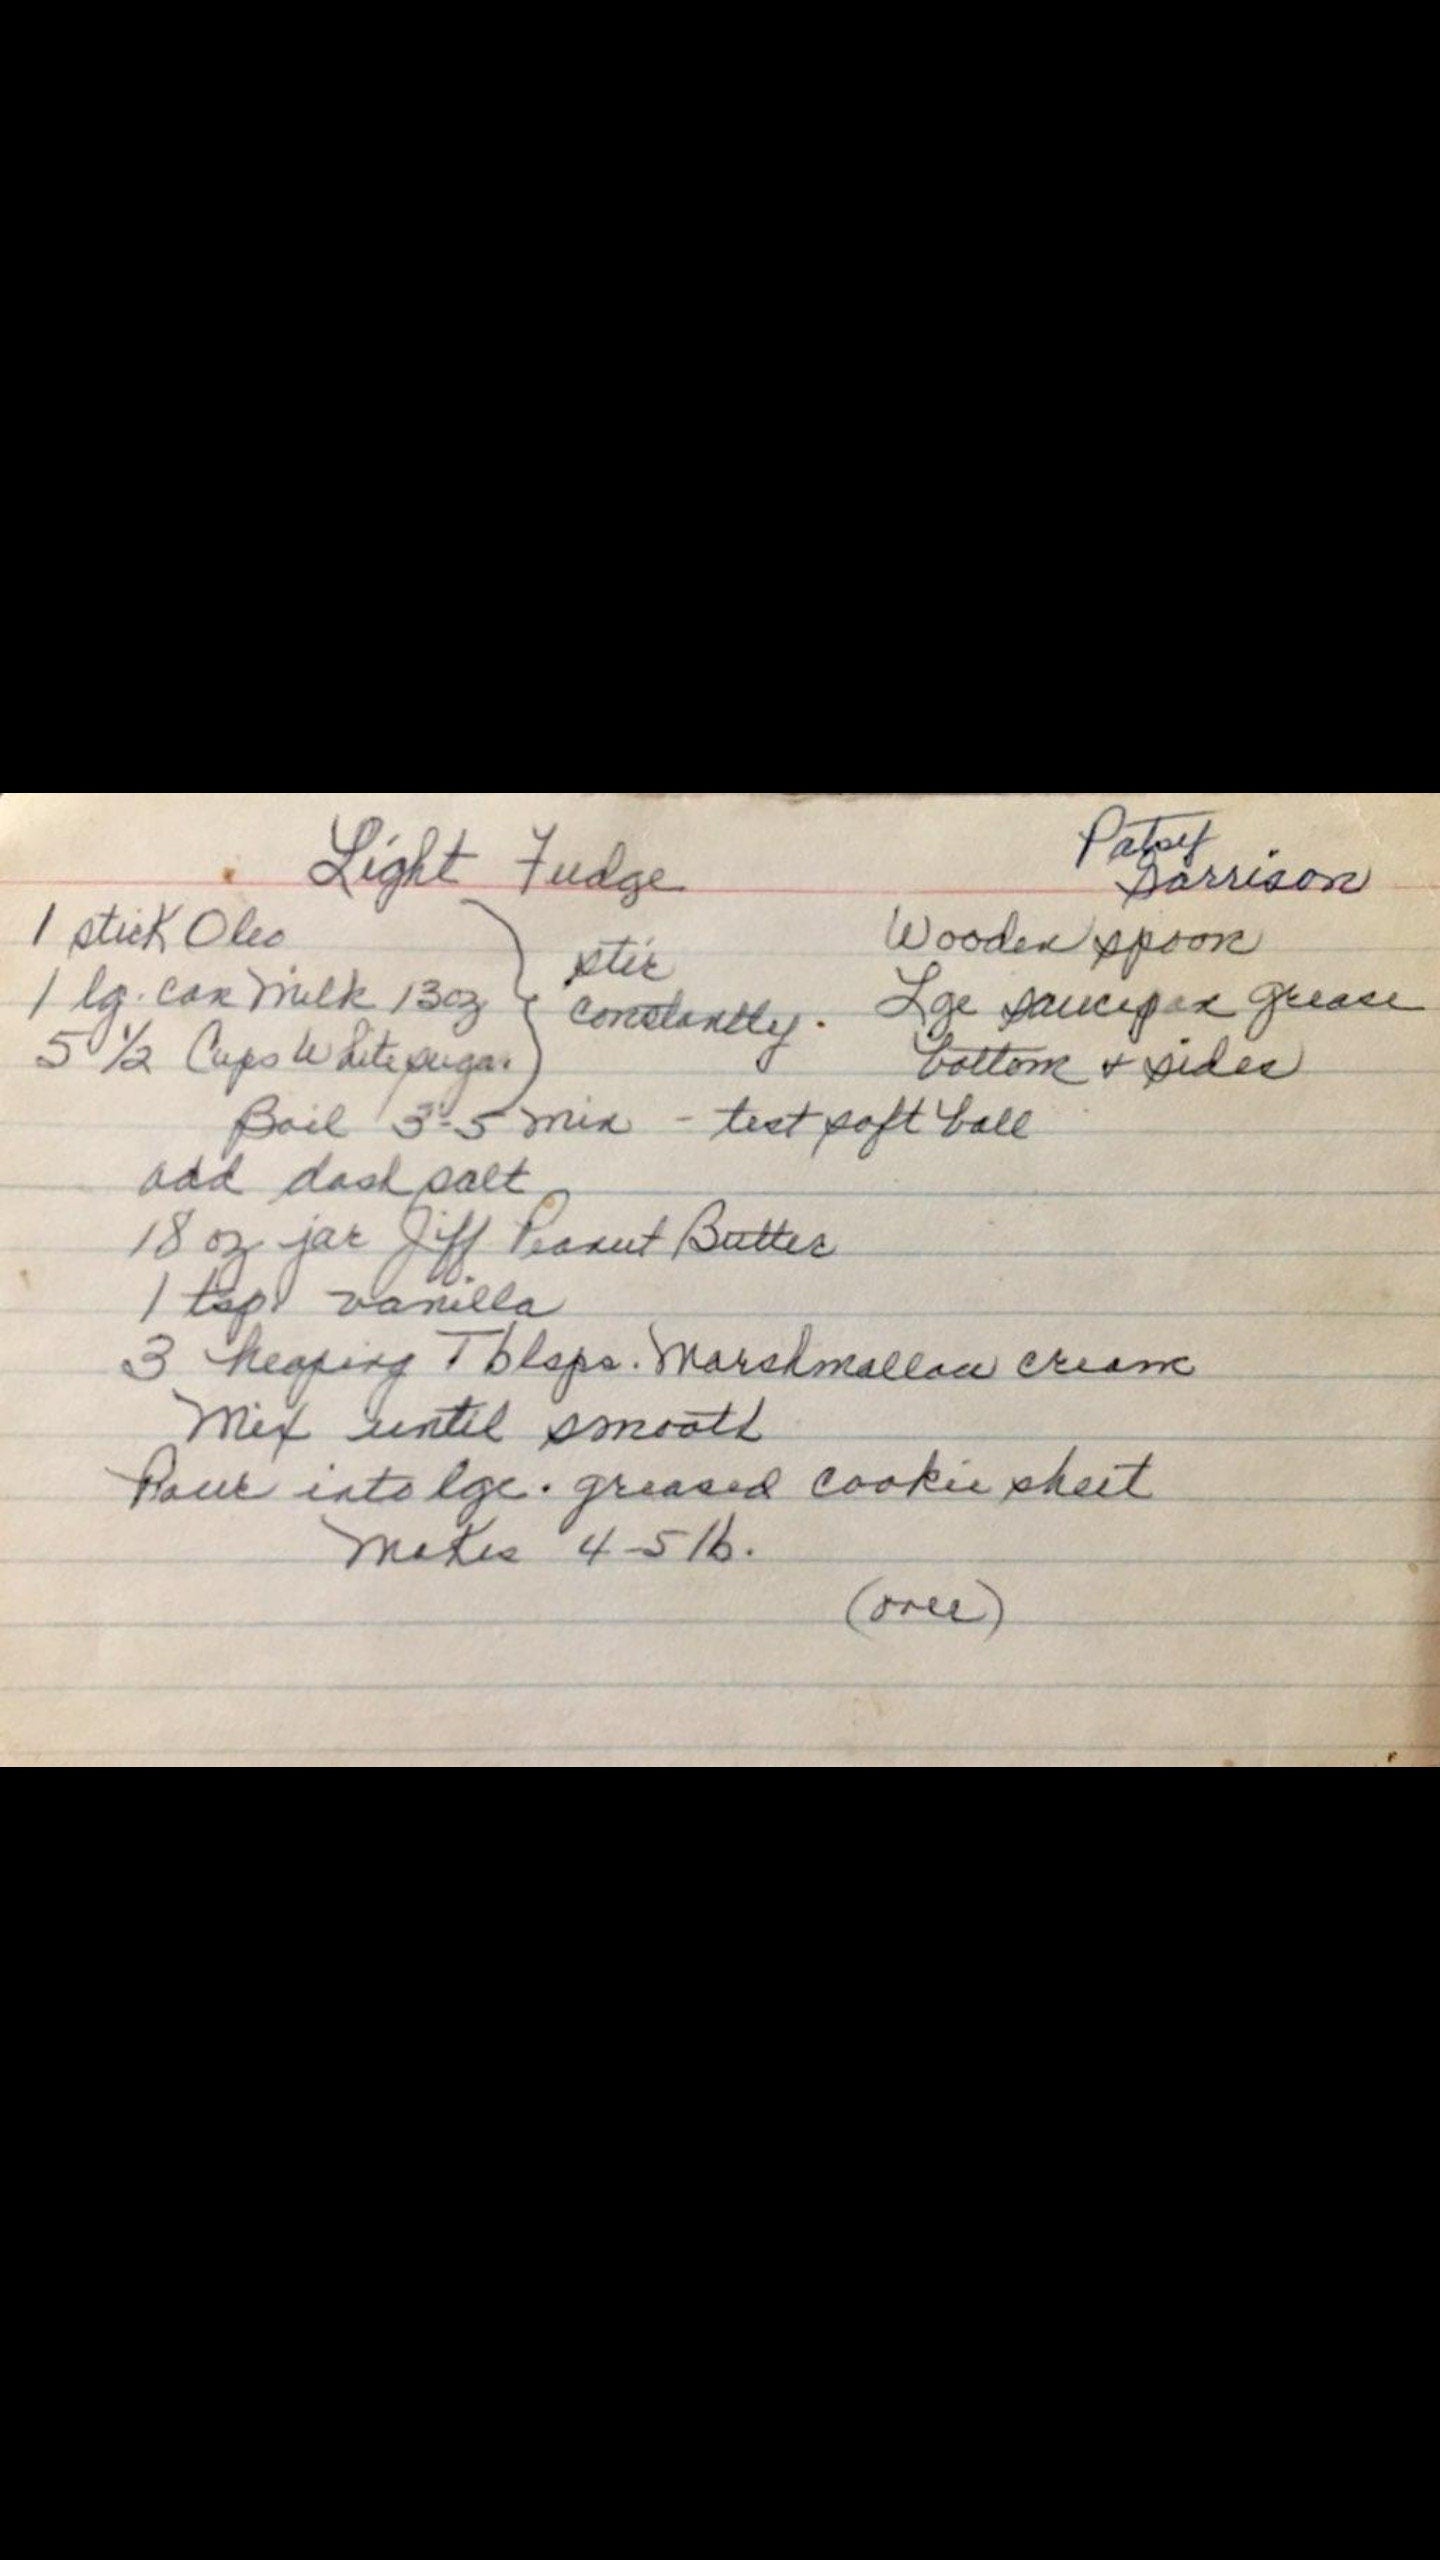 Light Fudge
Patsy
Garrison
1 stick Oleo
1 lg. can Milk 13 oz
5 1/2 Cups White sugar
stir
constantly.
Wooden spoon
Lge saucepan grease
bottom & sides
Boil 3-5 min - test soft ball
add dash salt
18 oz jar Jiff Peanut Butter
1 tsp. vanilla
3 heaping Tblsps. Marshmallow cream
Mix until smooth
Pour into lge. greased cookie sheet
Makes 4-5 lb.
(over)